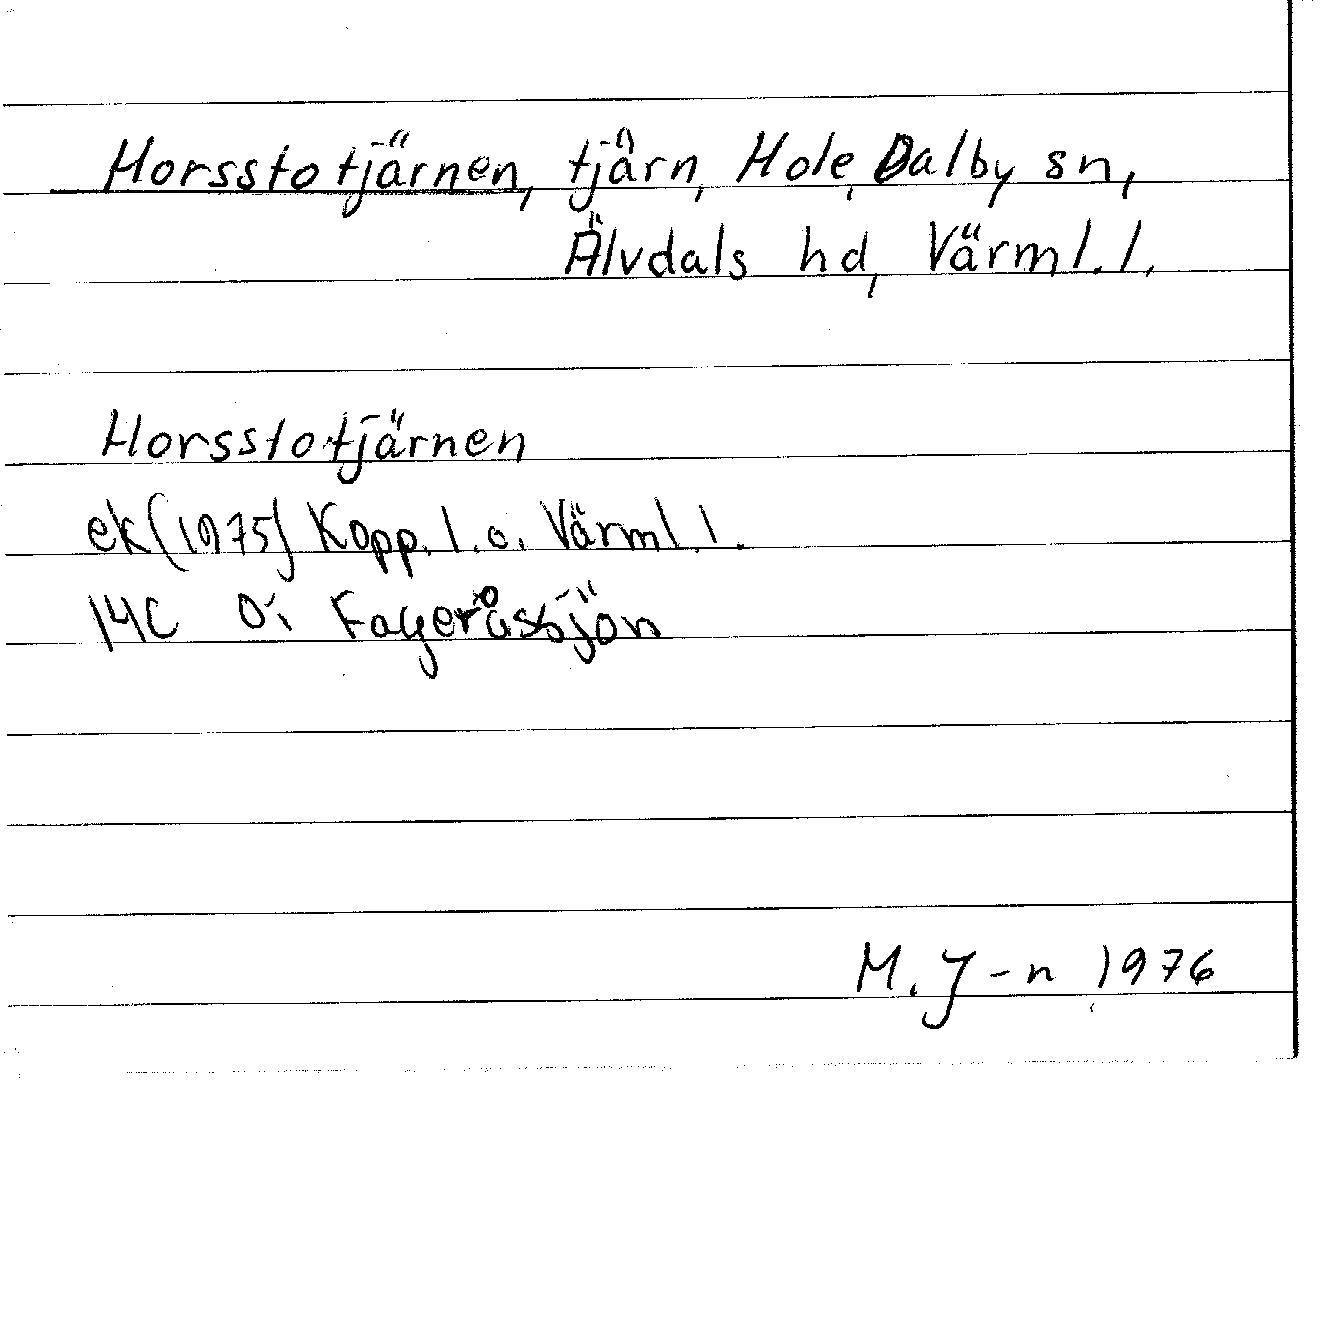 Horsstotjärnen, tjärn, Hole, Dalby sn,
Älvdals hd, Värml. l.
Horsstotjärnen
ek (1975) Kopp. l. o. Värml. l.
14C Ö: Fageråssjön
M. J-n 1976